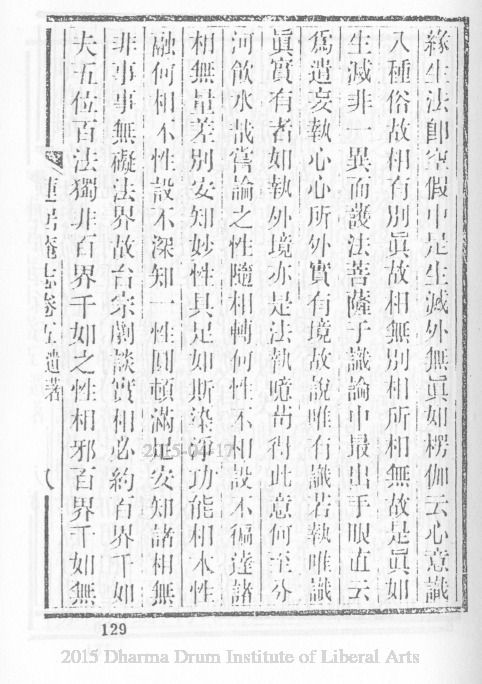 緣生法卽空假中是生滅外無眞如楞伽云心意識
八種俗故相有別眞故相無別相所相無故是眞如
生滅非一異而護法菩薩于識論中最出手眼直云
爲遣妄執心心所外實有境故說唯有識若執唯識
眞實有者如執外境亦是法執噫苟得此意何至分
河飮水哉嘗論之性隨相轉何性不相設不徧達諸
相無量差別安知妙性具足如斯染淨功能相本性
融何相不性設不深知一性圓頓滿足安知諸相無
非事事無礙法界故台宗劇談實相必約百界千如
夫五位百法獨非百界千如之性相邪百界千如無
蓮居菴志卷五遺著 八
2015-04-17
129
2015 Dharma Drum Institute of Liberal Arts